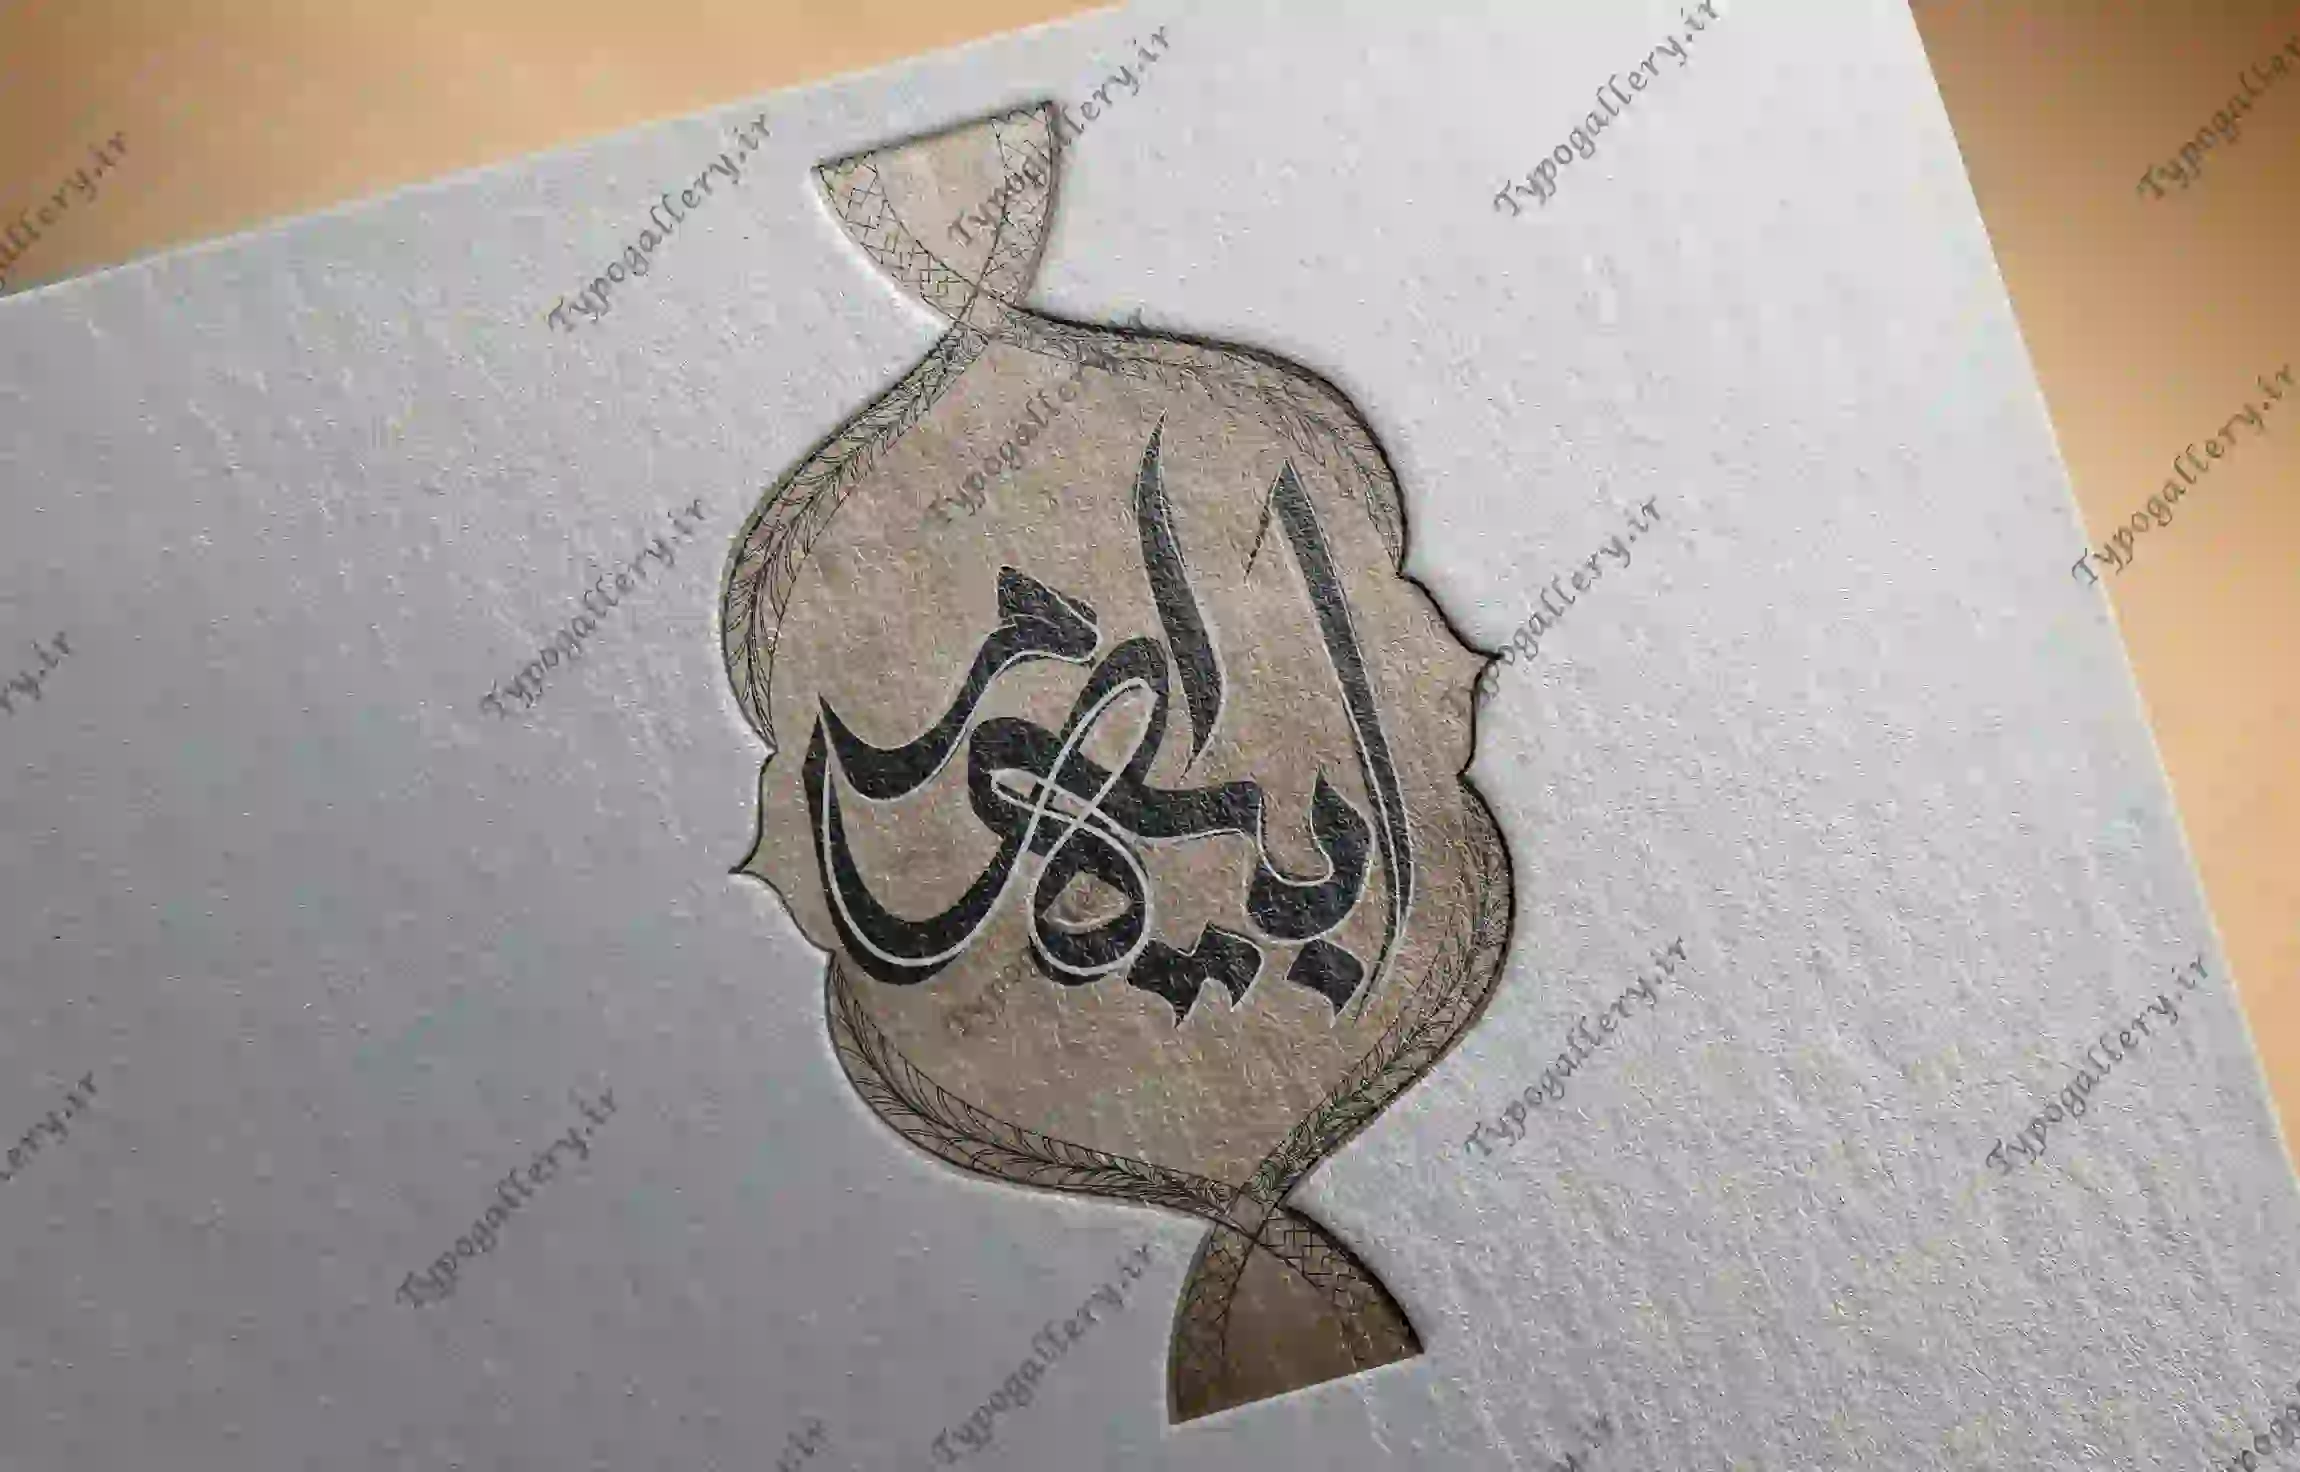 Typogallery.ir
Typogallery.ir
Typogallery.ir
Typogallery.ir
Typogallery.ir
ابراهیم
Typogallery.ir
Typogallery.ir
Typogallery.ir
Typogallery.ir
Typogallery.ir
Typogallery.ir
Typogallery.ir